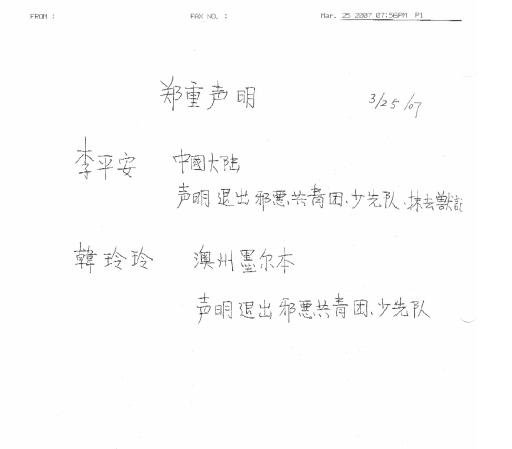 FROM : FAX NO. : Mar. 25 2007 07:56PM P1
郑重声明 3/25/07
李平安 中國大陆
声明退出邪悪共青团、少先队、抹去獸記
韓玲玲 澳州墨尔本
声明退出邪悪共青团、少先队